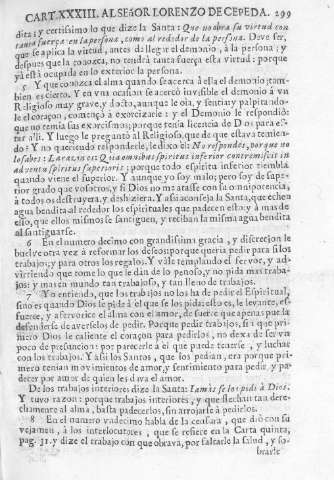 CART.XXXIII. AL SEñOR LORENZO DE CEPEDA. 299
dita; y certissimo lo que dize la Santa: Que no obra su virtud con
tanta fuerça en la persona, como al rededor de la persona. Deve ser,
que se aplica la virtud, antes de llegar el demonio, à la persona; y
despues que la conozca, no tendrà tanta fuerça esta virtud: porque
yà està ocupada en lo exterior la persona.
5 Y que conozca el alma quando se acerca à ella el demonio; tam-
bien es cierto. Y en vna ocasion se acercò invisible el demonio à vn
Religioso muy grave, y docto, aunque le oia, y sentia y palpitando-
le el coraçon, començò à exorcizarle: y el Demonio le respondiò:
que no temia sus exorcismos; porque tenia licencia de Dios para es-
tar alli. Y luego le preguntò al Religioso, que de que estava temien-
do? Y no queriendo responderle, le dixo èl: No respondes, porque no
lo sabes:
quia omnibus spiritus inferior contremiscit in
adventu spiritus superioris: porque todo espiritu inferior tiembla
quando viene el superior. Y aunque yo soy malo; pero soy de supe-
rior grado que vosotros, y si Dios no matasse con su omnipotencia,
à todos os destruyera, y deshiziera. Y assi aconseja la Santa, que echen
agua bendita al rededor los espirituales que padecen esto: y à mas de
esso, que ellos mismos se santiguen, y reciban la misma agua bendita
al santiguarse.
6 En el numero dezimo con grandissima gracia, y discrecion le
buelve otra vez à reformar los deseos; porque queria pedir para si los
trabajos; y para otros los regalos. Y vale templando el fervor, y ad-
virtiendo que tome lo que le dàn de lo penoso, y no pida mas traba-
jos: y mas en mundo tan trabajoso, y tan lleno de trabajos.
7 Yo entiendo, que los trabajos no los ha de pedir el Espiritual,
sino es quando Dios le pide à èl que se los pida: esto es, le levante, es-
fuerce, y afervorice el alma con el amor, de suerte que apenas pueda
defenderse de averselos de pedir. Porque pedir trabajos, si à que pri-
mero Dios le caliente el coraçon para pedirlos, no dexa de ser vn
poco de presuncion: por parecerle à èl que puede tenerse, y luchar
con los trabajos. Y assi los Santos, que los pedian, era porque pri-
mero tenian movimientos de amor, y sentimiento para pedir, y pa-
decer por amor de quien les dava el amor.
De los trabajos interiores dize la Santa: Jamàs se los pidì à Dios.
Y tuvo razon: porque trabajos interiores, y que flechan tan dere-
chamente al alma, basta padecerlos, sin arrojarse à pedirlos.
8 En el numero vndecimo habla de la censura, que diò con su
vejamen, à los interlocutores, que se refiere en la Carta quinta,
pag. 31. y dize el trabajo con que obrava, por faltarle la salud, y so-
brarle